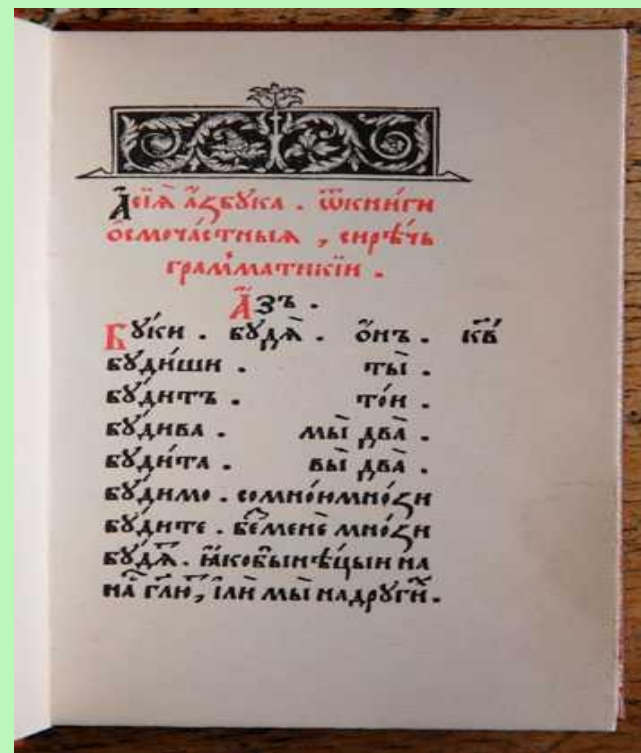 А҆сїѧ҆̀ а҆́ꙁбꙋка . ѿкни́ги
ѻ҆смоча́стныѧ , сирѣ́чь
грамматикїи .
А҆́зъ .
Бꙋ́ки . бꙋдѧ̀ . ѻ҆́нъ . к҃в
бꙋди́ши . ты̀ .
бꙋ́дитъ . то́и .
бꙋ́дива . мы̀ два̀ .
бꙋди́та . вы̀ два̀ .
бꙋ́димо . сомно́юмно́ꙁи
бꙋ́дите . менѐ мно́ꙁи
бꙋ́дѧ . на
гл҃ю , і҆лѝ мы̀ надрꙋги́